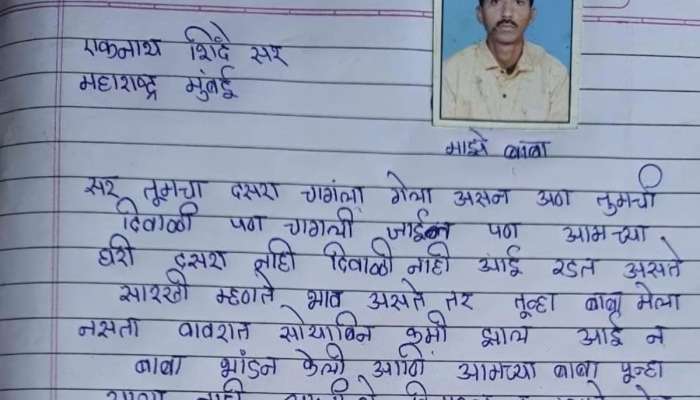 एकनाथ शिंदे सर
महाराष्ट्र मुंबई
माझे बाबा
सर तूमचा दसरा चागंला गेला असन अण तुमची
दिवाळी पण चागली जाईल पण आमच्या
घरी दसरा नाही दिवाळी नाही आई रडत असते
सारखी म्हणते भाव असते तर तूव्हा बाबा मेला
नसता वावरात सोयाबिन कमी झाल आई न
बाबा भांडन केली आणि आमच्या बाबा पून्हा
नाही